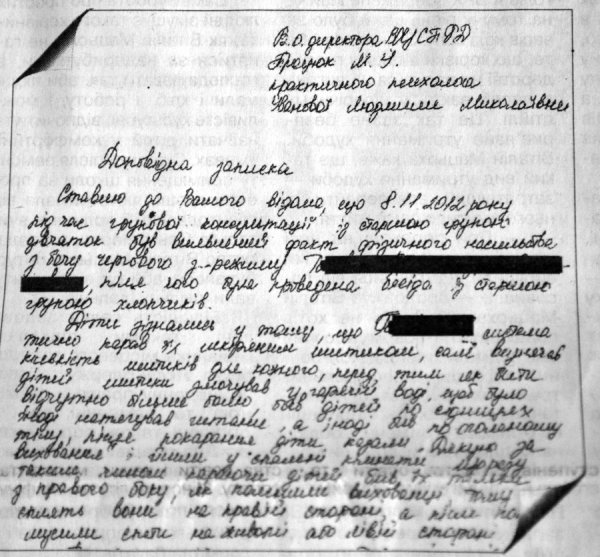 В.о. директора ВПУ СП РД
Грецюк М. У.
практичного психолога
Іванової Людмили Миколаївни
Доповідна записка
Ставлю до Вашого відома, що 8.11.2012 року
під час групової консультації із старшою групою
дівчаток був виявлений факт фізичного насильства
з боку чергового з режиму
, після чого була проведена бесіда із старшою
групою хлопчиків.
Діти зізнались у тому, що система
тично карав їх мокреним шматком, самі визначав
кількість шматків для кожного, перед тим як бити
дітей шматки змочував у гарячій воді, щоб було
відчутно більше болю бив дітей по сідницях
іноді натягував штани, а іноді бив по голому
тілу, після покарання діти казали "Дякую за
виховання" і йшли у спальні кімнати
таким чином караючи дітей бив їх тільки
з правого боку, як пояснили вихованці тому
сплять вони на правій стороні, а після по
мусили спати на животі або лівій стороні